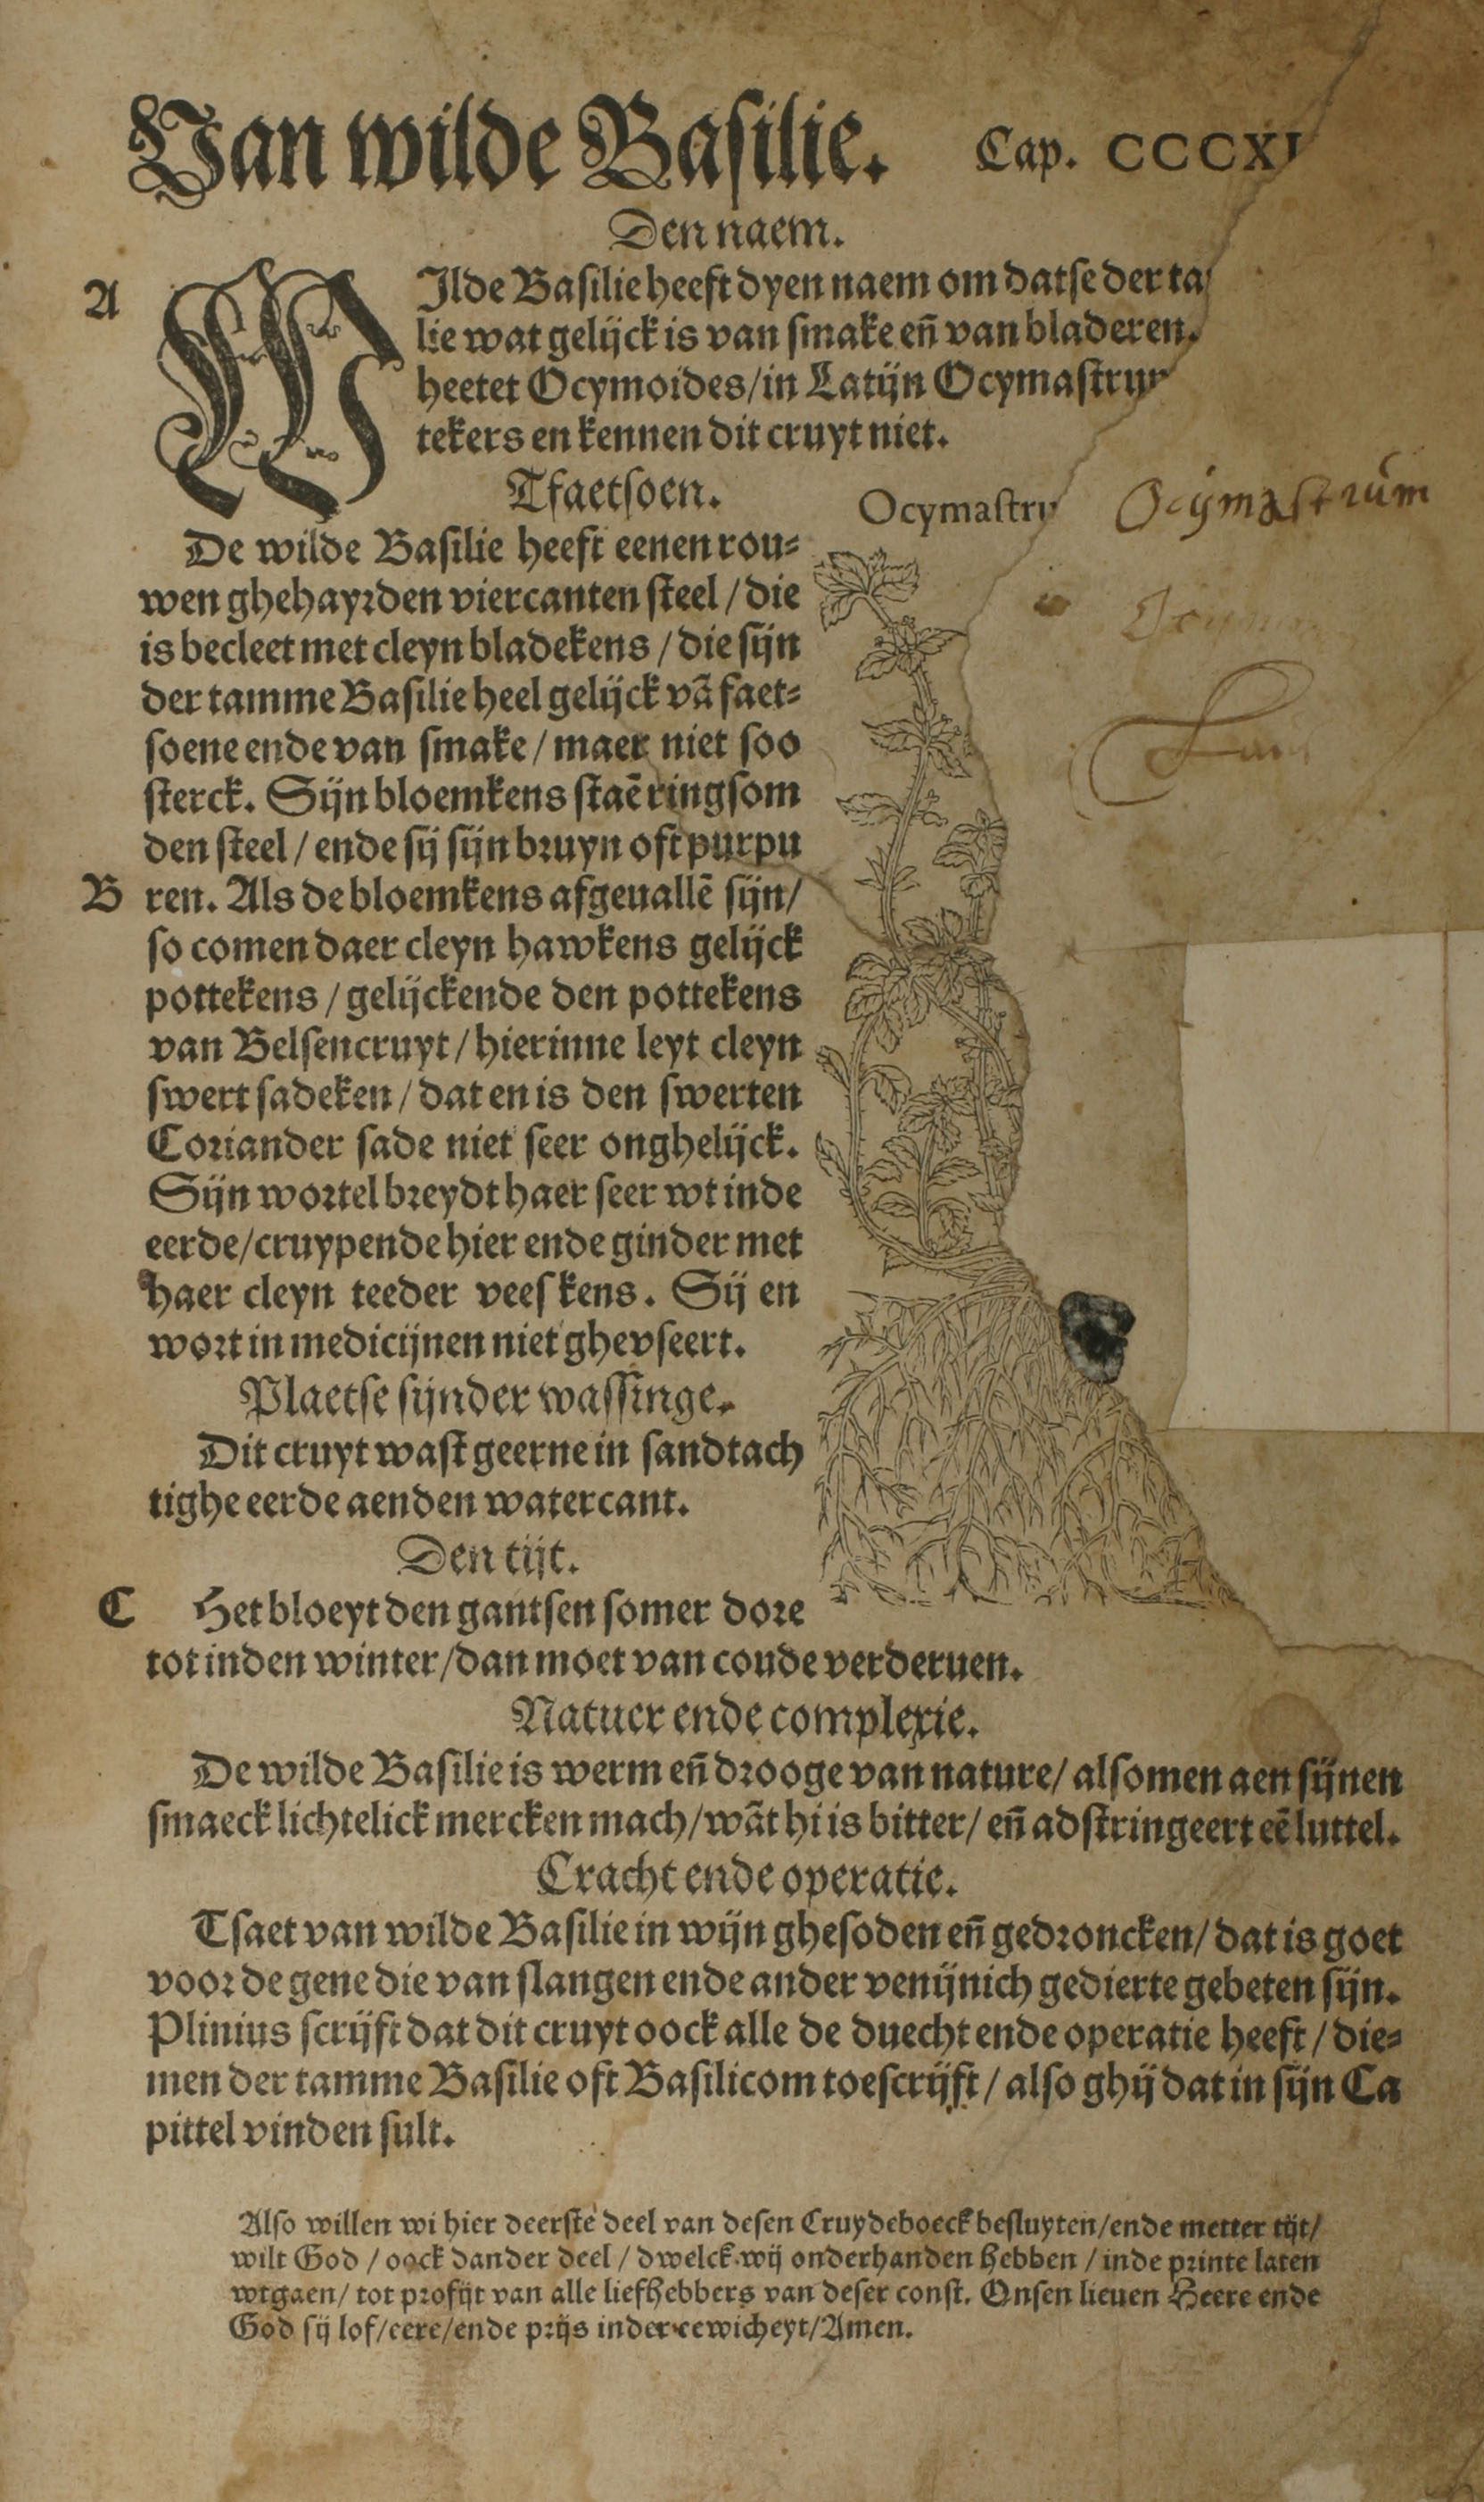 Van wilde Basilie. Cap. CCCXI
Den naem.
A WIlde Basilie heeft dyen naem om datse der ta
lie wat gelijck is van smake eñ van bladeren.
heetet Ocymoides/in Latijn Ocymastrum
tekers en kennen dit cruyt niet.
Tfaetsoen.
Ocymastru
Ocijmastrum
De wilde Basilie heeft eenen rou⸗
wen ghehayrden viercanten steel / die
is becleet met cleyn bladekens / die sijn
der tamme Basilie heel gelijck vā faet⸗
soene ende van smake / maer niet soo
sterck. Sijn bloemkens staē ringsom
den steel / ende sij sijn bruyn oft purpu
B ren. Als de bloemkens afgeuallē sijn/
so comen daer cleyn hawkens gelijck
pottekens / gelijckende den pottekens
van Belsencruyt / hierinne leyt cleyn
swert sadeken / dat en is den swerten
Coriander sade niet seer onghelijck.
Sijn wortel breydt haer seer wt inde
eerde/cruypende hier ende ginder met
haer cleyn teeder veeskens. Sij en
wort in medicijnen niet ghevseert.
Plaetse sijnder wassinge.
Dit cruyt wast geerne in sandtach
tighe eerde aenden watercant.
Den tijt.
C Het bloeyt den gantsen somer dore
tot inden winter/dan moet van coude verderuen.
Natuer ende complexie.
De wilde Basilie is werm eñ drooge van nature/ alsomen aen sijnen
smaeck lichtelick mercken mach/wāt hi is bitter/ eñ adstringeert eē luttel.
Cracht ende operatie.
Tsaet van wilde Basilie in wijn ghesoden eñ gedroncken/ dat is goet
voor de gene die van slangen ende ander venijnich gedierte gebeten sijn.
Plinius scrijft dat dit cruyt oock alle de duecht ende operatie heeft / die⸗
men der tamme Basilie oft Basilicom toescrijft / also ghij dat in sijn Ca
pittel vinden sult.
Also willen wi hier deerste deel van desen Cruydeboeck besluyten/ende metter tijt/
wilt God / oock dander deel / dwelck wij onderhanden hebben / inde printe laten
wtgaen/ tot profijt van alle liefhebbers van deser const. Onsen lieuen Heere ende
God sij lof/eere/ende prijs inder eewicheyt/Amen.